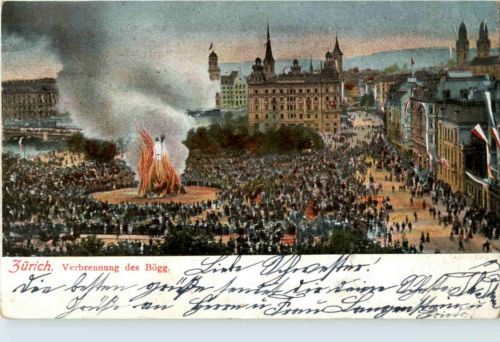 Zürich. Verbrennung des Bögg.
Liebe Schwester!
Die besten grüße sendet die
Grüße an Herrn u Frau